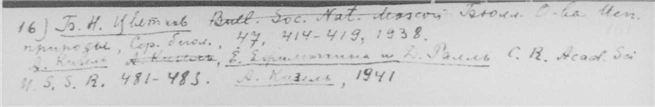 16) Б. Н. Цветив Bull. Soc. Nat. Moscou Бюлл. О-ва Исп.
природы, Сер. биол., 47, 414-419, 1938.
А. Кизель А. Кизель, Е. Ефимочкина и Д. Ралль C. R. Acad. Sci
U. S. S. R. 481-483. А. Кизель, 1941